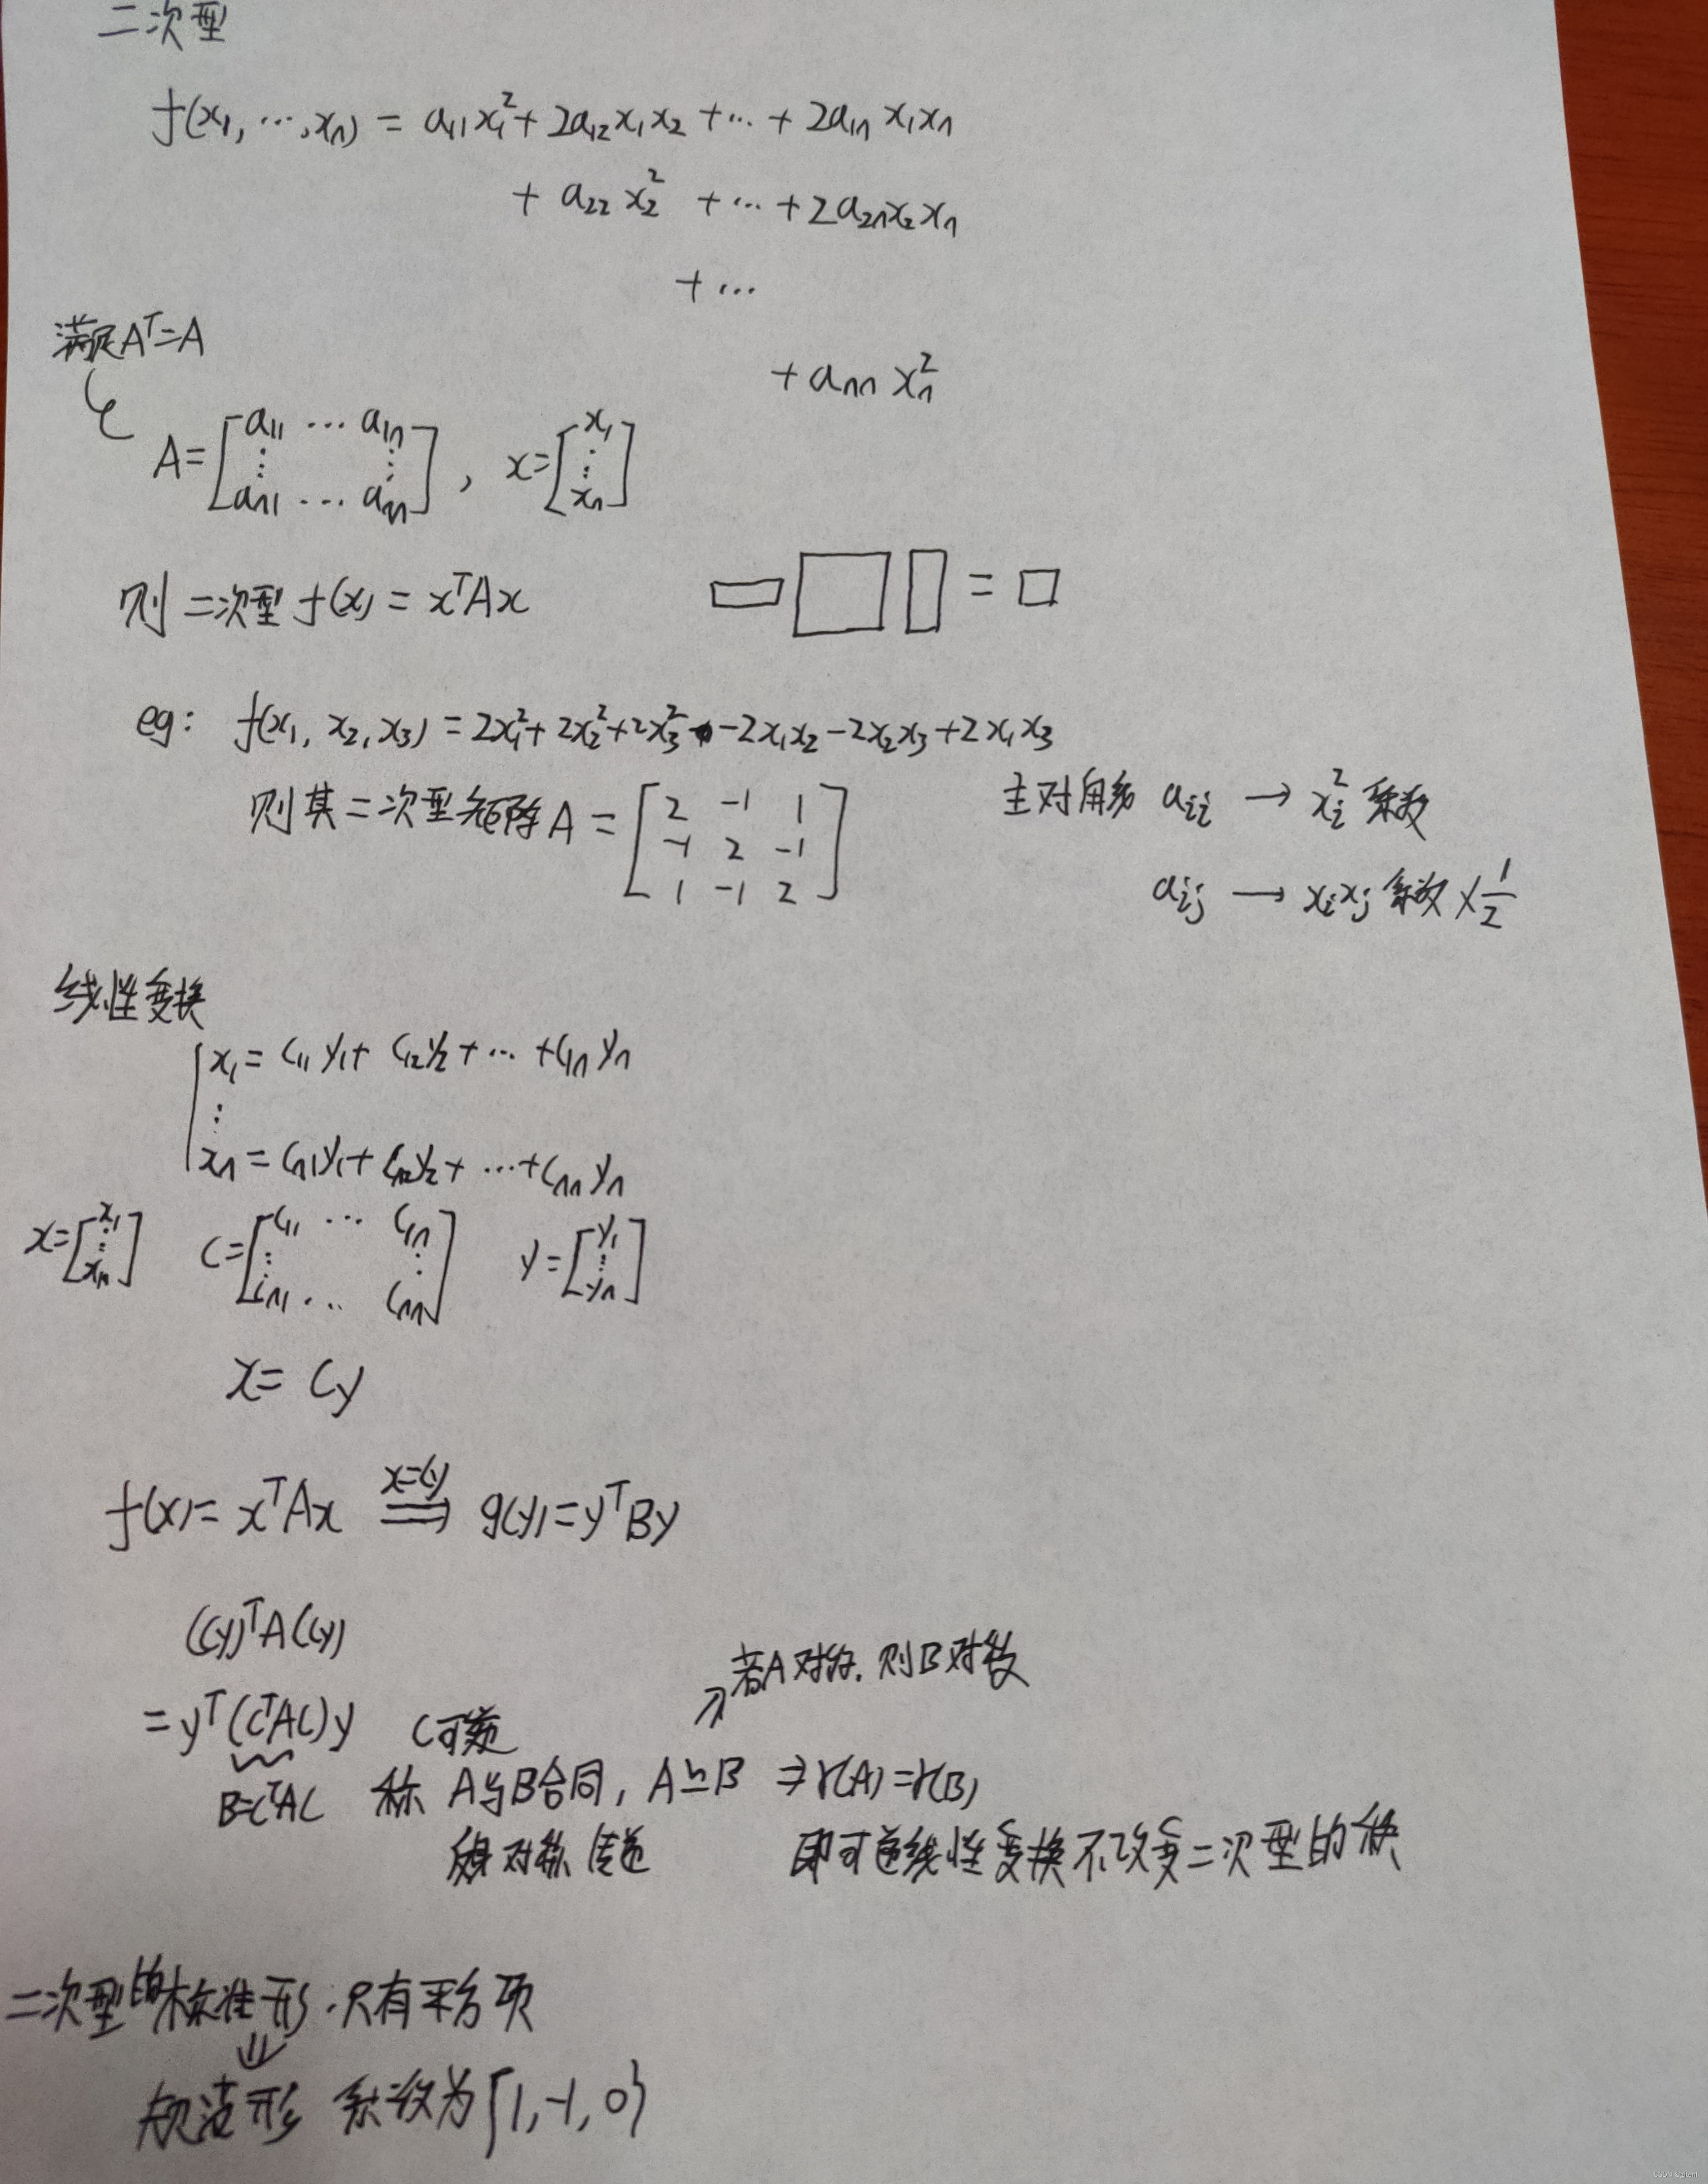 二次型
f(x₁, ⋯, xₙ) = a₁₁x₁² + 2a₁₂x₁x₂ + ⋯ + 2a₁ₙx₁xₙ
+ a₂₂x₂² + ⋯ + 2a₂ₙx₂xₙ
+ ⋯
+ aₙₙxₙ²
满足Aᵀ=A
A = [a₁₁ ⋯ a₁ₙ; ⋮ ⋮; aₙ₁ ⋯ aₙₙ], x = [x₁; ⋮; xₙ]
则二次型 f(x) = xᵀAx
=
eg: f(x₁, x₂, x₃) = 2x₁² + 2x₂² + 2x₃² - 2x₁x₂ - 2x₂x₃ + 2x₁x₃
则其二次型矩阵A = [2 -1 1; -1 2 -1; 1 -1 2]
主对角线 aᵢᵢ → xᵢ² 系数
aᵢⱼ → xᵢxⱼ 系数 × 1/2
线性变换
x₁ = c₁₁y₁ + c₁₂y₂ + ⋯ + c₁ₙyₙ
⋮
xₙ = cₙ₁y₁ + cₙ₂y₂ + ⋯ + cₙₙyₙ
x = [x₁; ⋮; xₙ] C = [c₁₁ ⋯ c₁ₙ; ⋮ ⋮; cₙ₁ ⋯ cₙₙ] y = [y₁; ⋮; yₙ]
x = Cy
f(x) = xᵀAx ⟹ (x=Cy) g(y) = yᵀBy
(Cy)ᵀA(Cy)
= yᵀ(CᵀAC)y C可逆
↗ 若A对称, 则B对称
B=CᵀAC 称 A与B合同, A≃B ⇒ r(A) = r(B)
对称 传递
即可逆线性变换不改变二次型的秩
二次型的标准形: 只有平方项
⇓
规范形 系数为{1, -1, 0}